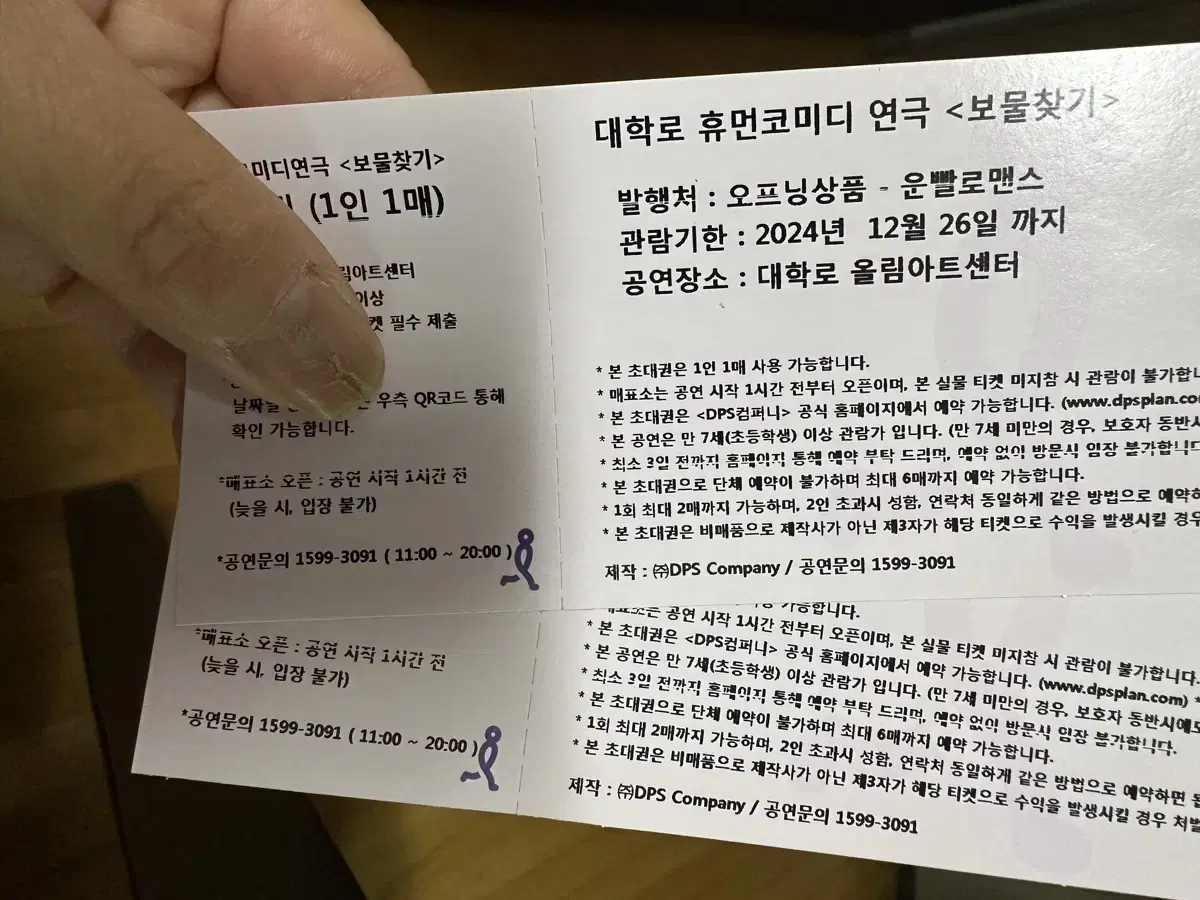 미디연극 <보물찾기>
(1인 1매)
림아트센터
이상
켓 필수 제출
우측 QR코드 통해
확인 가능합니다.
*매표소 오픈 : 공연 시작 1시간 전
(늦을 시, 입장 불가)
*공연문의 1599-3091 ( 11:00 ~ 20:00 )
대학로 휴먼코미디 연극 <보물찾기>
발행처 : 오프닝상품 - 운빨로맨스
관람기한 : 2024년 12월 26일 까지
공연장소 : 대학로 올림아트센터
* 본 초대권은 1인 1매 사용 가능합니다.
* 매표소는 공연 시작 1시간 전부터 오픈이며, 본 실물 티켓 미지참 시 관람이 불가합니
* 본 초대권은 <DPS컴퍼니> 공식 홈페이지에서 예약 가능합니다. (www.dpsplan.co
* 본 공연은 만 7세(초등학생) 이상 관람가 입니다. (만 7세 미만의 경우, 보호자 동반시
* 최소 3일 전까지 홈페이지 통해 예약 부탁 드리며, 예약 없이 방문시 입장 불가합니다
* 본 초대권으로 단체 예약이 불가하며 최대 6매까지 예약 가능합니다.
* 1회 최대 2매까지 가능하며, 2인 초과시 성함, 연락처 동일하게 같은 방법으로 예약하
* 본 초대권은 비매품으로 제작사가 아닌 제3자가 해당 티켓으로 수익을 발생시킬 경우
제작 : ㈜DPS Company / 공연문의 1599-3091
*매표소 오픈 : 공연 시작 1시간 전
(늦을 시, 입장 불가)
*공연문의 1599-3091 ( 11:00 ~ 20:00 )
가능합니다.
매표소는 공연 시작 1시간 전부터 오픈이며, 본 실물 티켓 미지참 시 관람이 불가합니다.
* 본 초대권은 <DPS컴퍼니> 공식 홈페이지에서 예약 가능합니다. (www.dpsplan.com) *
* 본 공연은 만 7세(초등학생) 이상 관람가 입니다. (만 7세 미만의 경우, 보호자 동반시에도
* 최소 3일 전까지 홈페이지 통해 예약 부탁 드리며, 예약 없이 방문시 입장 불가합니다.
* 본 초대권으로 단체 예약이 불가하며 최대 6매까지 예약 가능합니다.
* 1회 최대 2매까지 가능하며, 2인 초과시 성함, 연락처 동일하게 같은 방법으로 예약하면 됩
* 본 초대권은 비매품으로 제작사가 아닌 제3자가 해당 티켓으로 수익을 발생시킬 경우 처벌
제작 : ㈜DPS Company / 공연문의 1599-3091